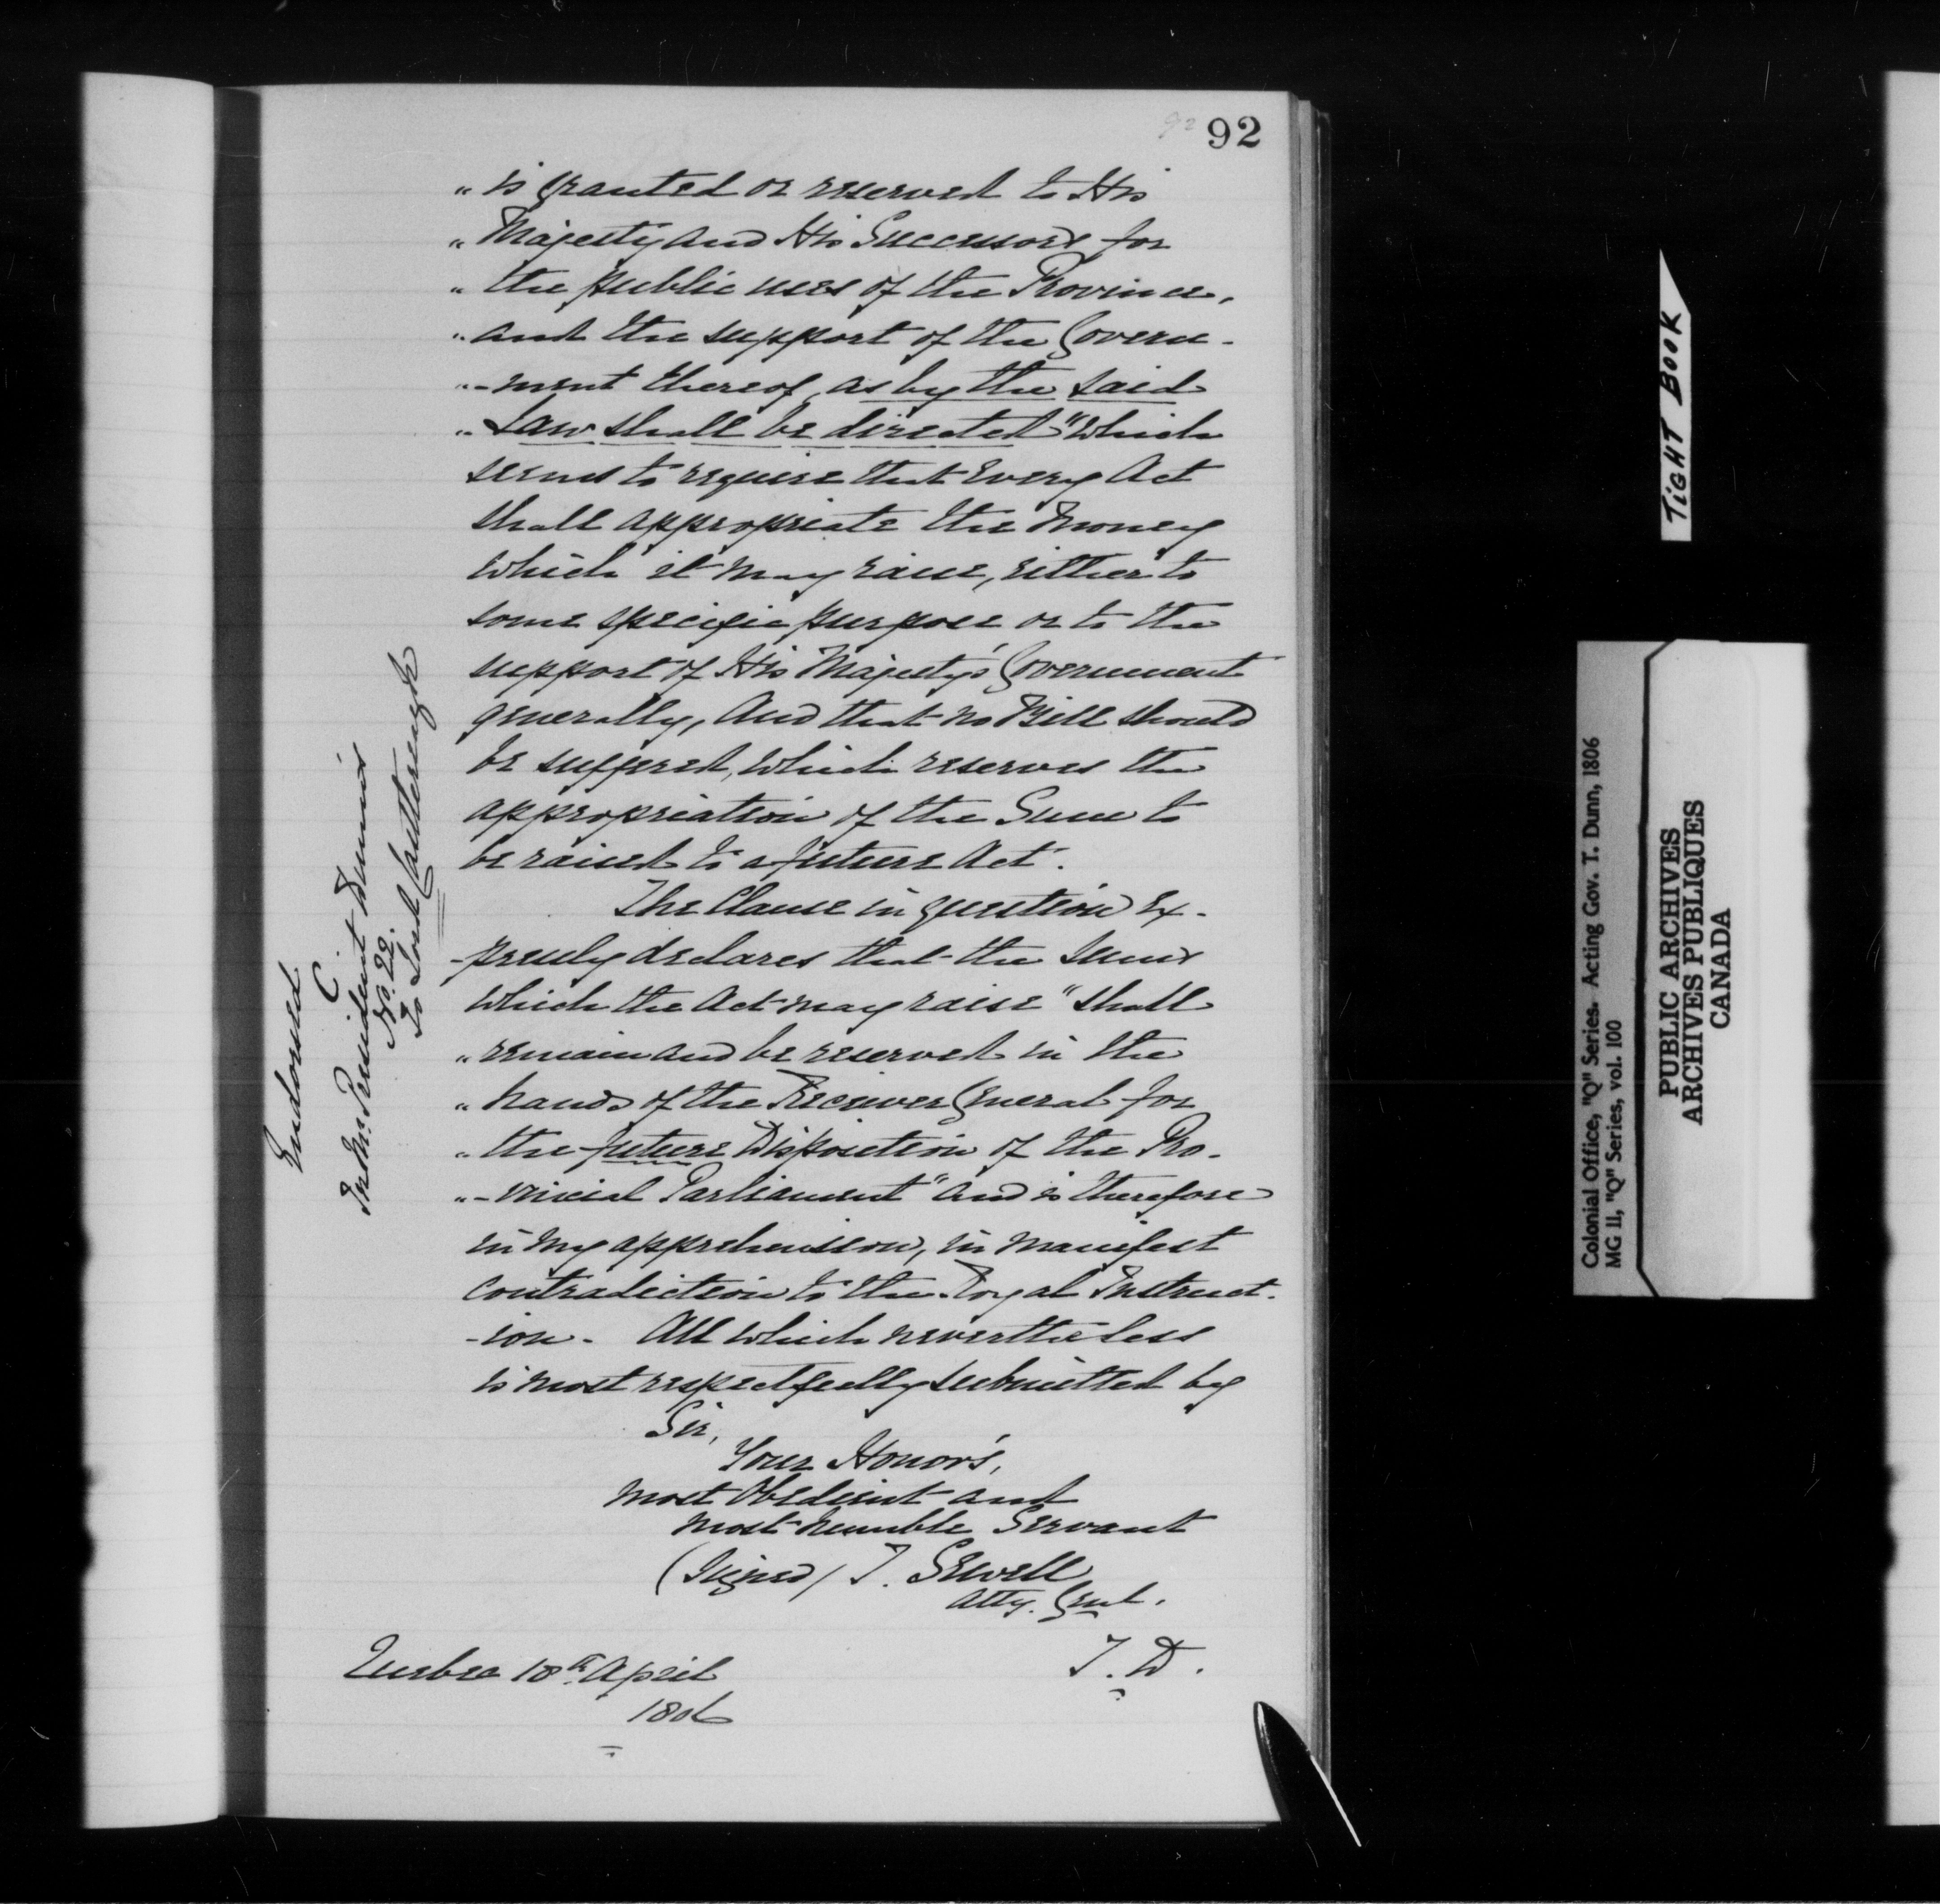 92 92
" is Granted or reserved to His
" Majesty and His Successors for
" the public uses of the Province,
" and the support of the Govern-
" -ment thereof, as by the said
" Law shall be directed" which
seems to require that Every Act
shall appropriate the Money
which it may raise, either to
some specific purpose or to the
support of His Majesty's Government
generally, And that no Bill should
be suffered, which reserves the
appropriation of the Sum to
be raised to a future Act.
The Clause in question Ex-
-pressly declares that the Sums
which the Act may raise "shall
" remain and be reserved in the
" hands of the Receiver General for
" the future Disposition of the Pro-
" -vincial Parliament" and is therefore
in my apprehension, in manifest
contradiction to the Royal Instruct-
-ion. All which nevertheless
is most respectfully submitted by
Sir,
Your Honor's,
most Obedient and
most humble Servant
(Signed) J. Sewell
Atty. Genl.
T. D.
Quebec 18th April
1806
Endorsed
C.
In Mr. President Dunn's
No. 22.
To Lord Castlereagh
TIGHT BOOK
Colonial Office, "Q" Series. Acting Gov. T. Dunn, 1806
MG 11, "Q" Series, vol. 100
PUBLIC ARCHIVES
ARCHIVES PUBLIQUES
CANADA